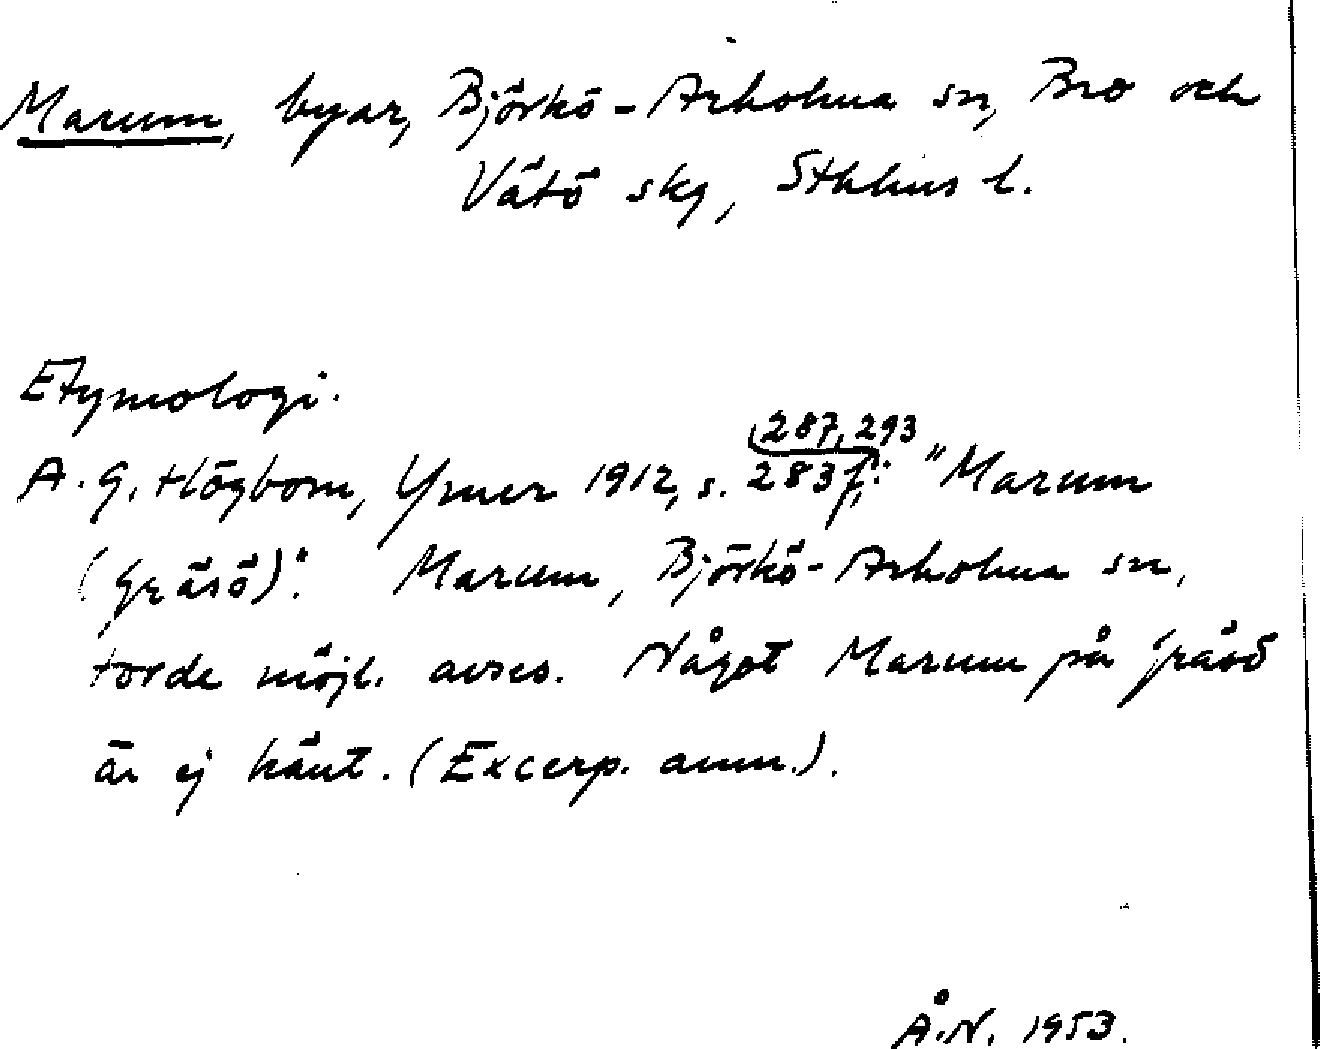 Marum, byar, Björkö-Arholma sn, Bro och
Vätö skg, Sthlms l.
Etymologi.
287, 293
A. G. Högbom, Ymer 1912, s. 283 f.: "Marum
(Gräsö)": Marum, Björkö-Arholma sn,
torde möjl. avses. Något Marum på Gräsö
är ej känt. (Excerp. anm.).
Å.N. 1953.